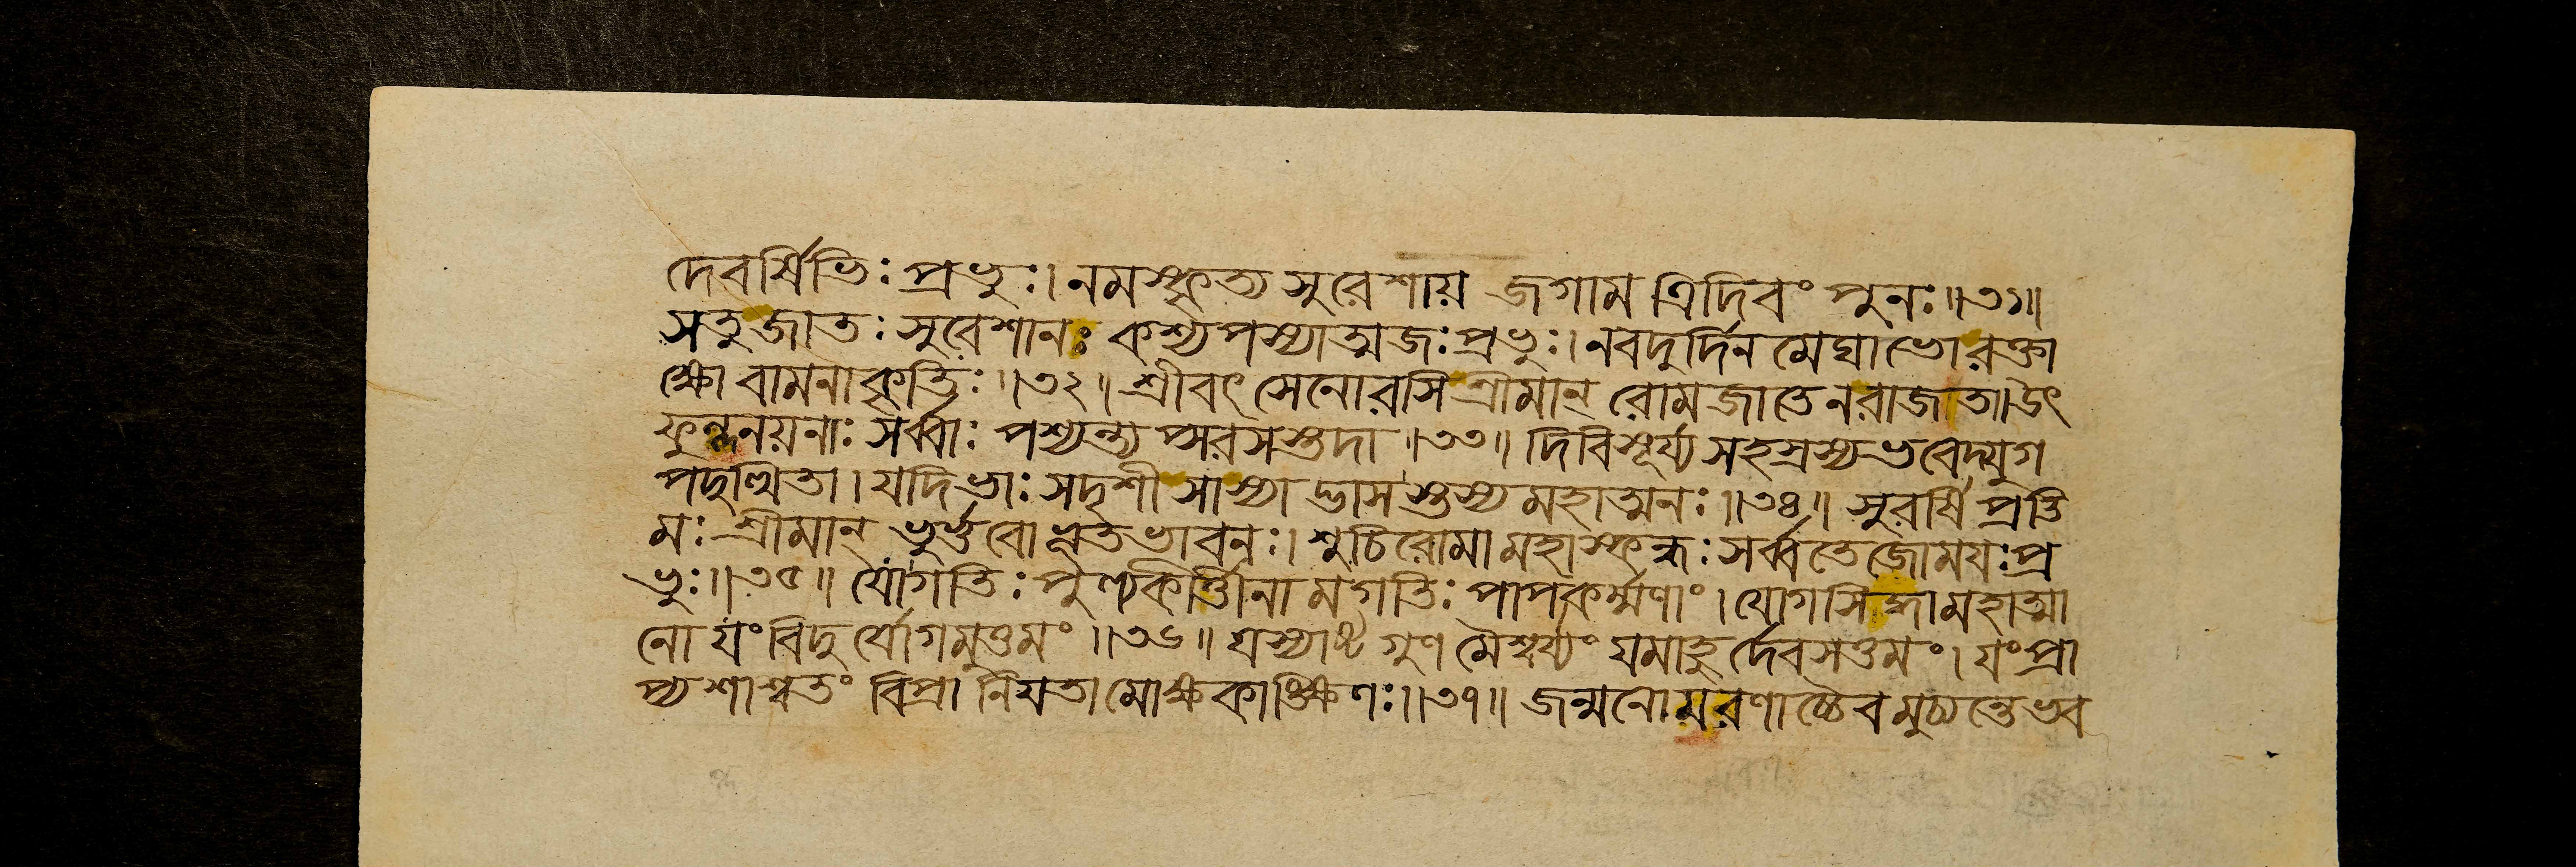 দেবর্ষিভিঃ প্রভুঃ। নমস্কৃত্য সুরেশায় জগাম ত্রিদিবং পুনঃ॥৩১॥
সতুজাতঃ সুরেশানঃ কশ্যপস্যাত্মজঃ প্রভুঃ। নবদুর্দিন মেঘাভো রক্তা
ক্ষো বামনাকৃতিঃ॥৩২॥ শ্রীবৎসেনোরসি শ্রীমান্ রোমজাতেন রাজতা। উৎ
ফুল্লনয়নাঃ সর্ব্বাঃ পশ্যন্ত্যপ্সরসস্তদা॥৩৩॥ দিবিসূর্য্য সহস্রস্য ভবেদ্যুগ
পদুত্থিতা। যদি ভাঃ সদৃশী সাস্যাদ্ভাসস্তস্য মহাত্মনঃ॥৩৪॥ সুরর্ষি প্রতি
মঃ শ্রীমান্ ভূর্ভুবোভূতভাবনঃ। শুচিরোমা মহাস্কন্ধঃ সর্ব্বতেজোময়ঃ প্র
ভুঃ॥৩৫॥ যোগতিঃ পুণ্যকির্ত্তীনামগতিঃ পাপকর্ম্মণাং। যোগসিদ্ধামহাত্মা
নো যং বিদুর্যোগমুত্তমং॥৩৬॥ যস্যাষ্টগুণমৈশ্বর্য্যং যমাহুর্দেবসত্তমং। যং প্রা
প্য শাশ্বতং বিপ্রা নিযতা মোক্ষকাঙ্ক্ষিণঃ॥৩৭॥ জন্মনোমরণাচ্চৈব মুচ্যন্তে ভব